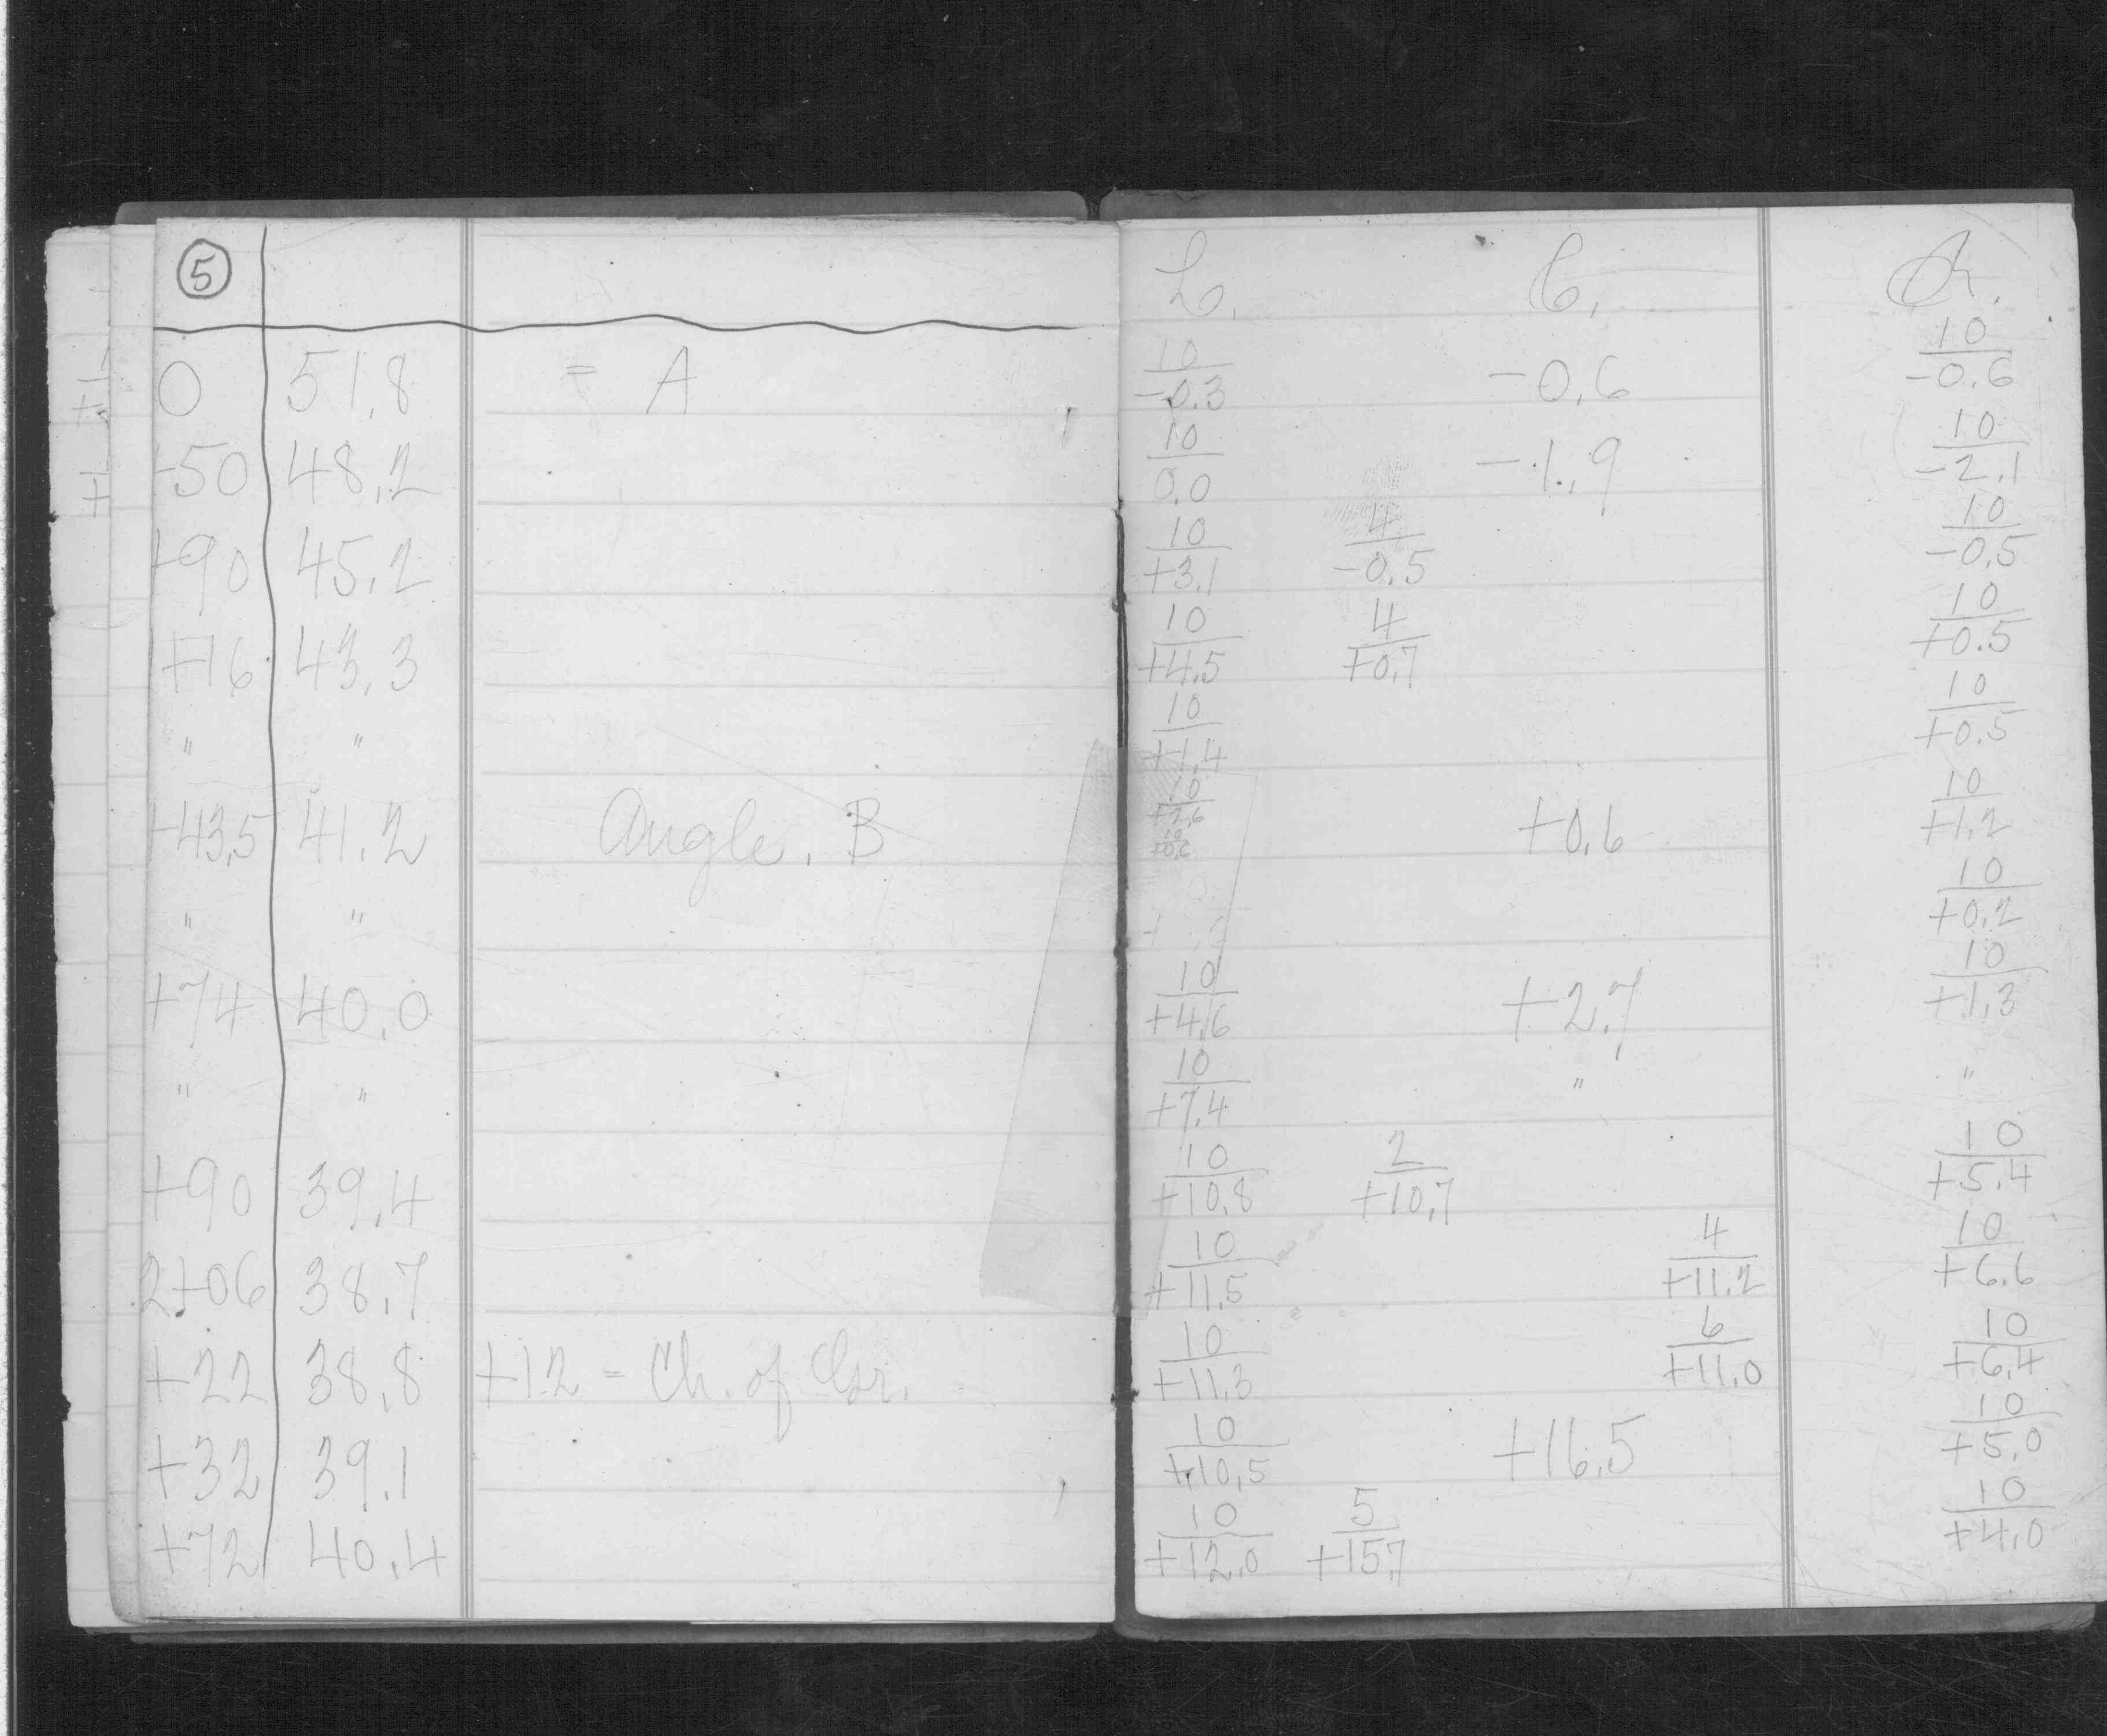 5
L. C. R.
0 51.8 = A 10/-0.3 -0.6 10/-0.6
+50 48.2 10/0.0 -1.9 10/-2.1
+90 45.2 10/+3.1 4/-0.5 10/-0.5
+16 43.3 10/+4.5 4/+0.7 10/+0.5
" " 10/+1.4 10/+0.5
+43.5 41.2 Angle. B 10/+2.6 10/+0.6 +0.6 10/+1.2
" " 10/+0.2
+74 40.0 10/+4.6 +2.7 10/+1.3
" " 10/+7.4 " "
+90 39.4 10/+10.8 2/+10.7 10/+5.4
2+06 38.7 10/+11.5 4/+11.2 10/+6.6
+22 38.8 +12 = Ch. of Gr. 10/+11.3 6/+11.0 10/+6.4
+32 39.1 10/+10.5 +16.5 10/+5.0
+72 40.4 10/+12.0 5/+15.7 10/+4.0